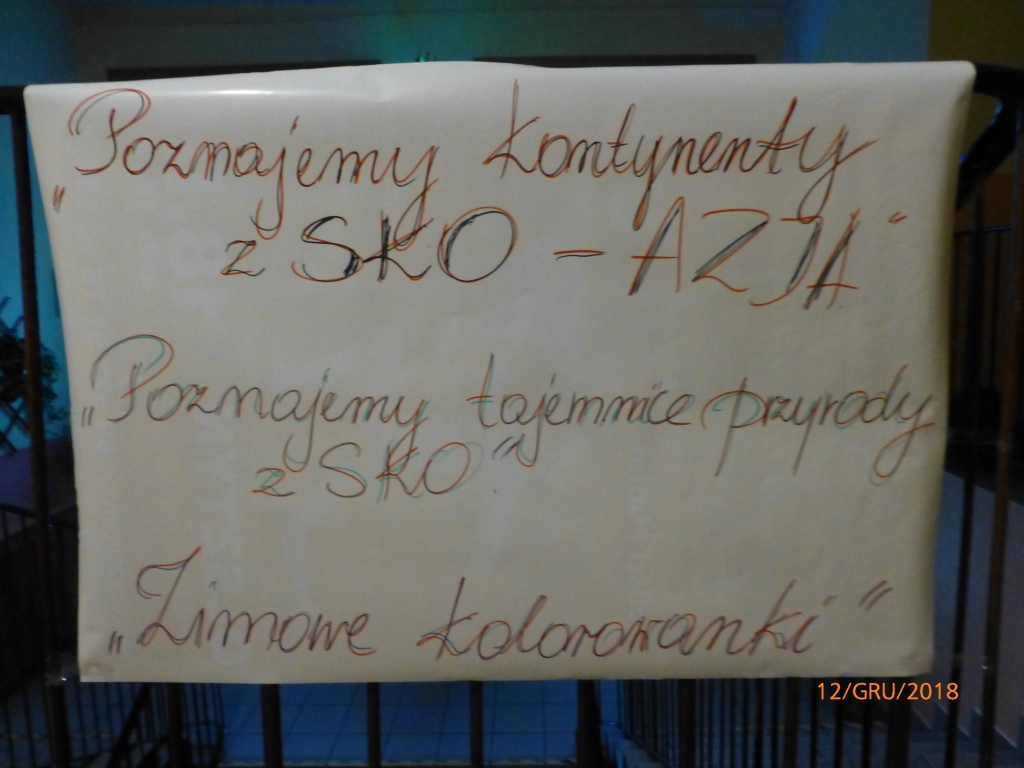 „Poznajemy kontynenty
z SKO - AZJA“
„Poznajemy tajemnice przyrody
z SKO“
„Zimowe kolorowanki“
12/GRU/2018